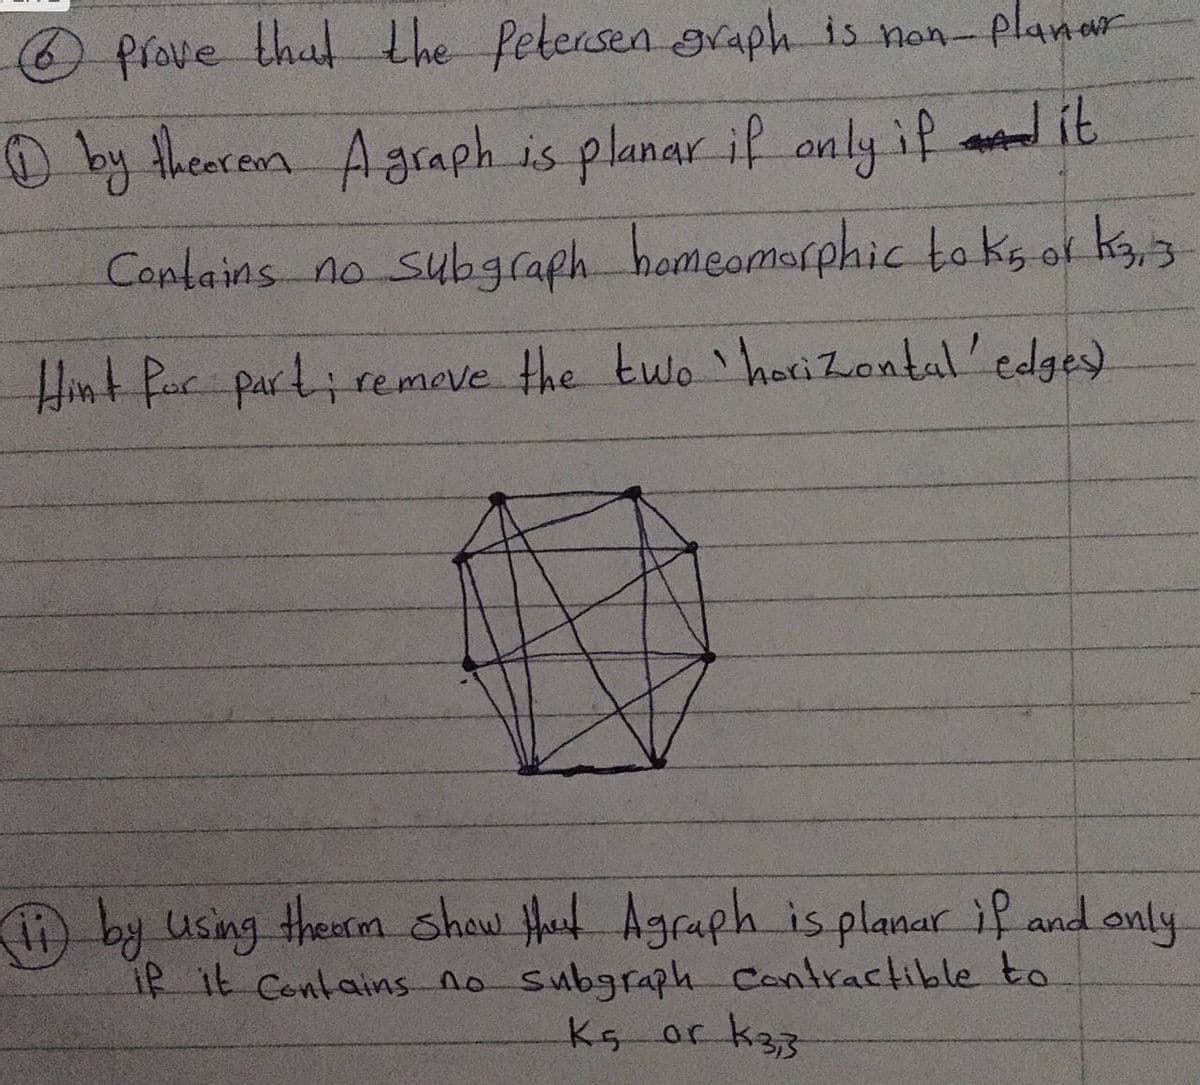 ⑥ prove that the Petersen graph is non-planar
① by theorem A graph is planar if only if it
Contains no subgraph homeomorphic to K5 or K3,3
Hint for part i remove the two 'horizontal' edges)
ii by using theorm show that A graph is planar if and only
if it Contains no subgraph contractible to
K5 or K3,3